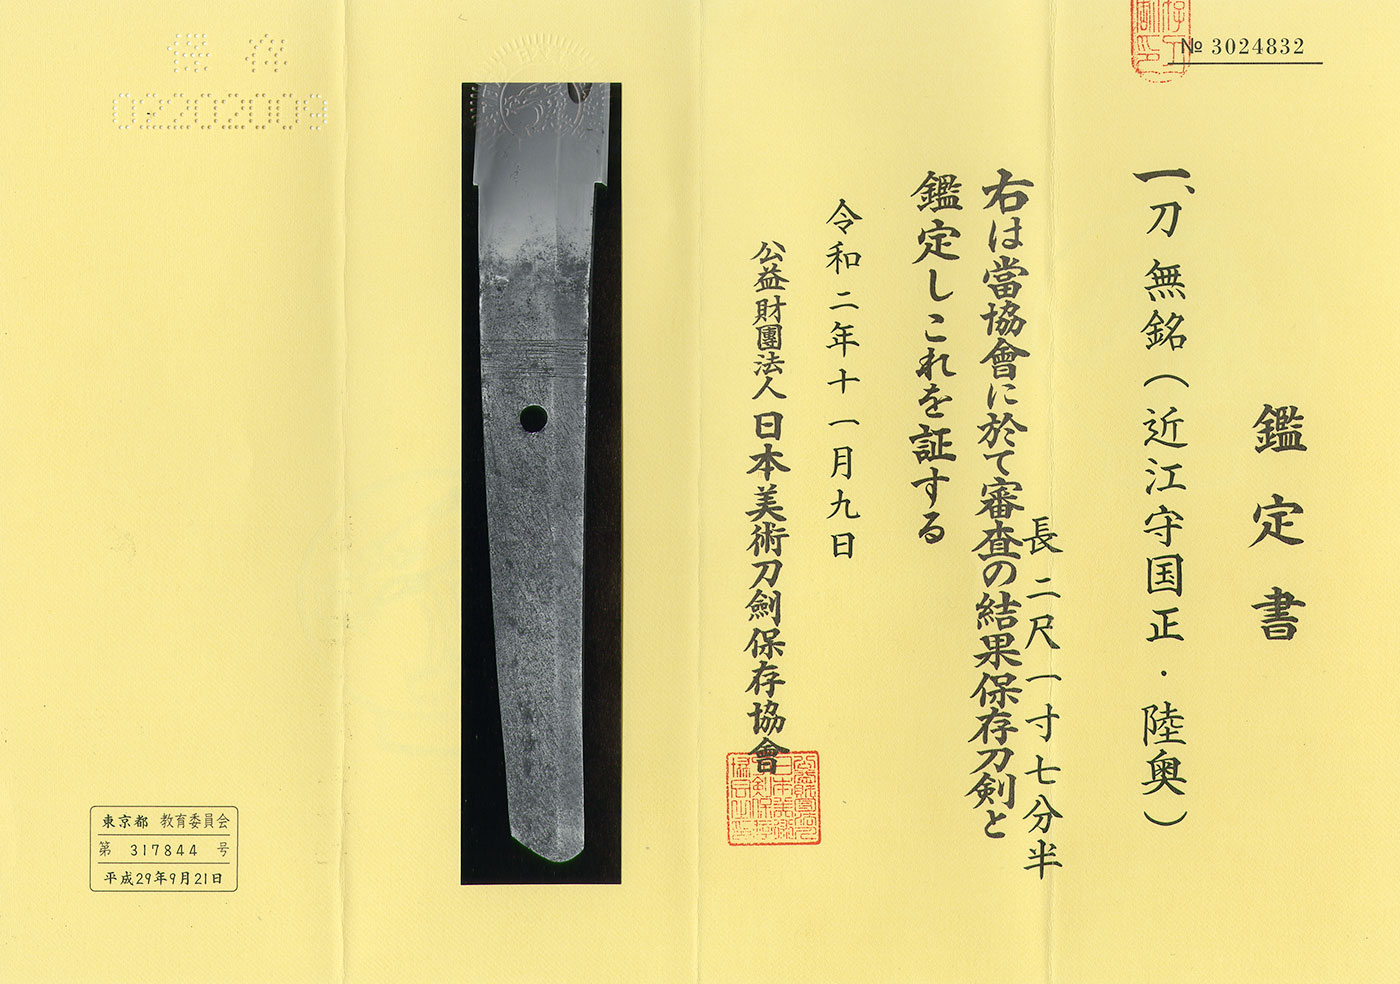 № 3024832
鑑定書
一、刀 無銘(近江守国正・陸奥)
長 二尺一寸七分半
右は當協會に於て審査の結果保存刀剣と
鑑定しこれを証する
令和二年十一月九日
公益財團法人 日本美術刀劍保存協會
保存
02202009
東京都 教育委員会
第 317844 号
平成29年9月21日